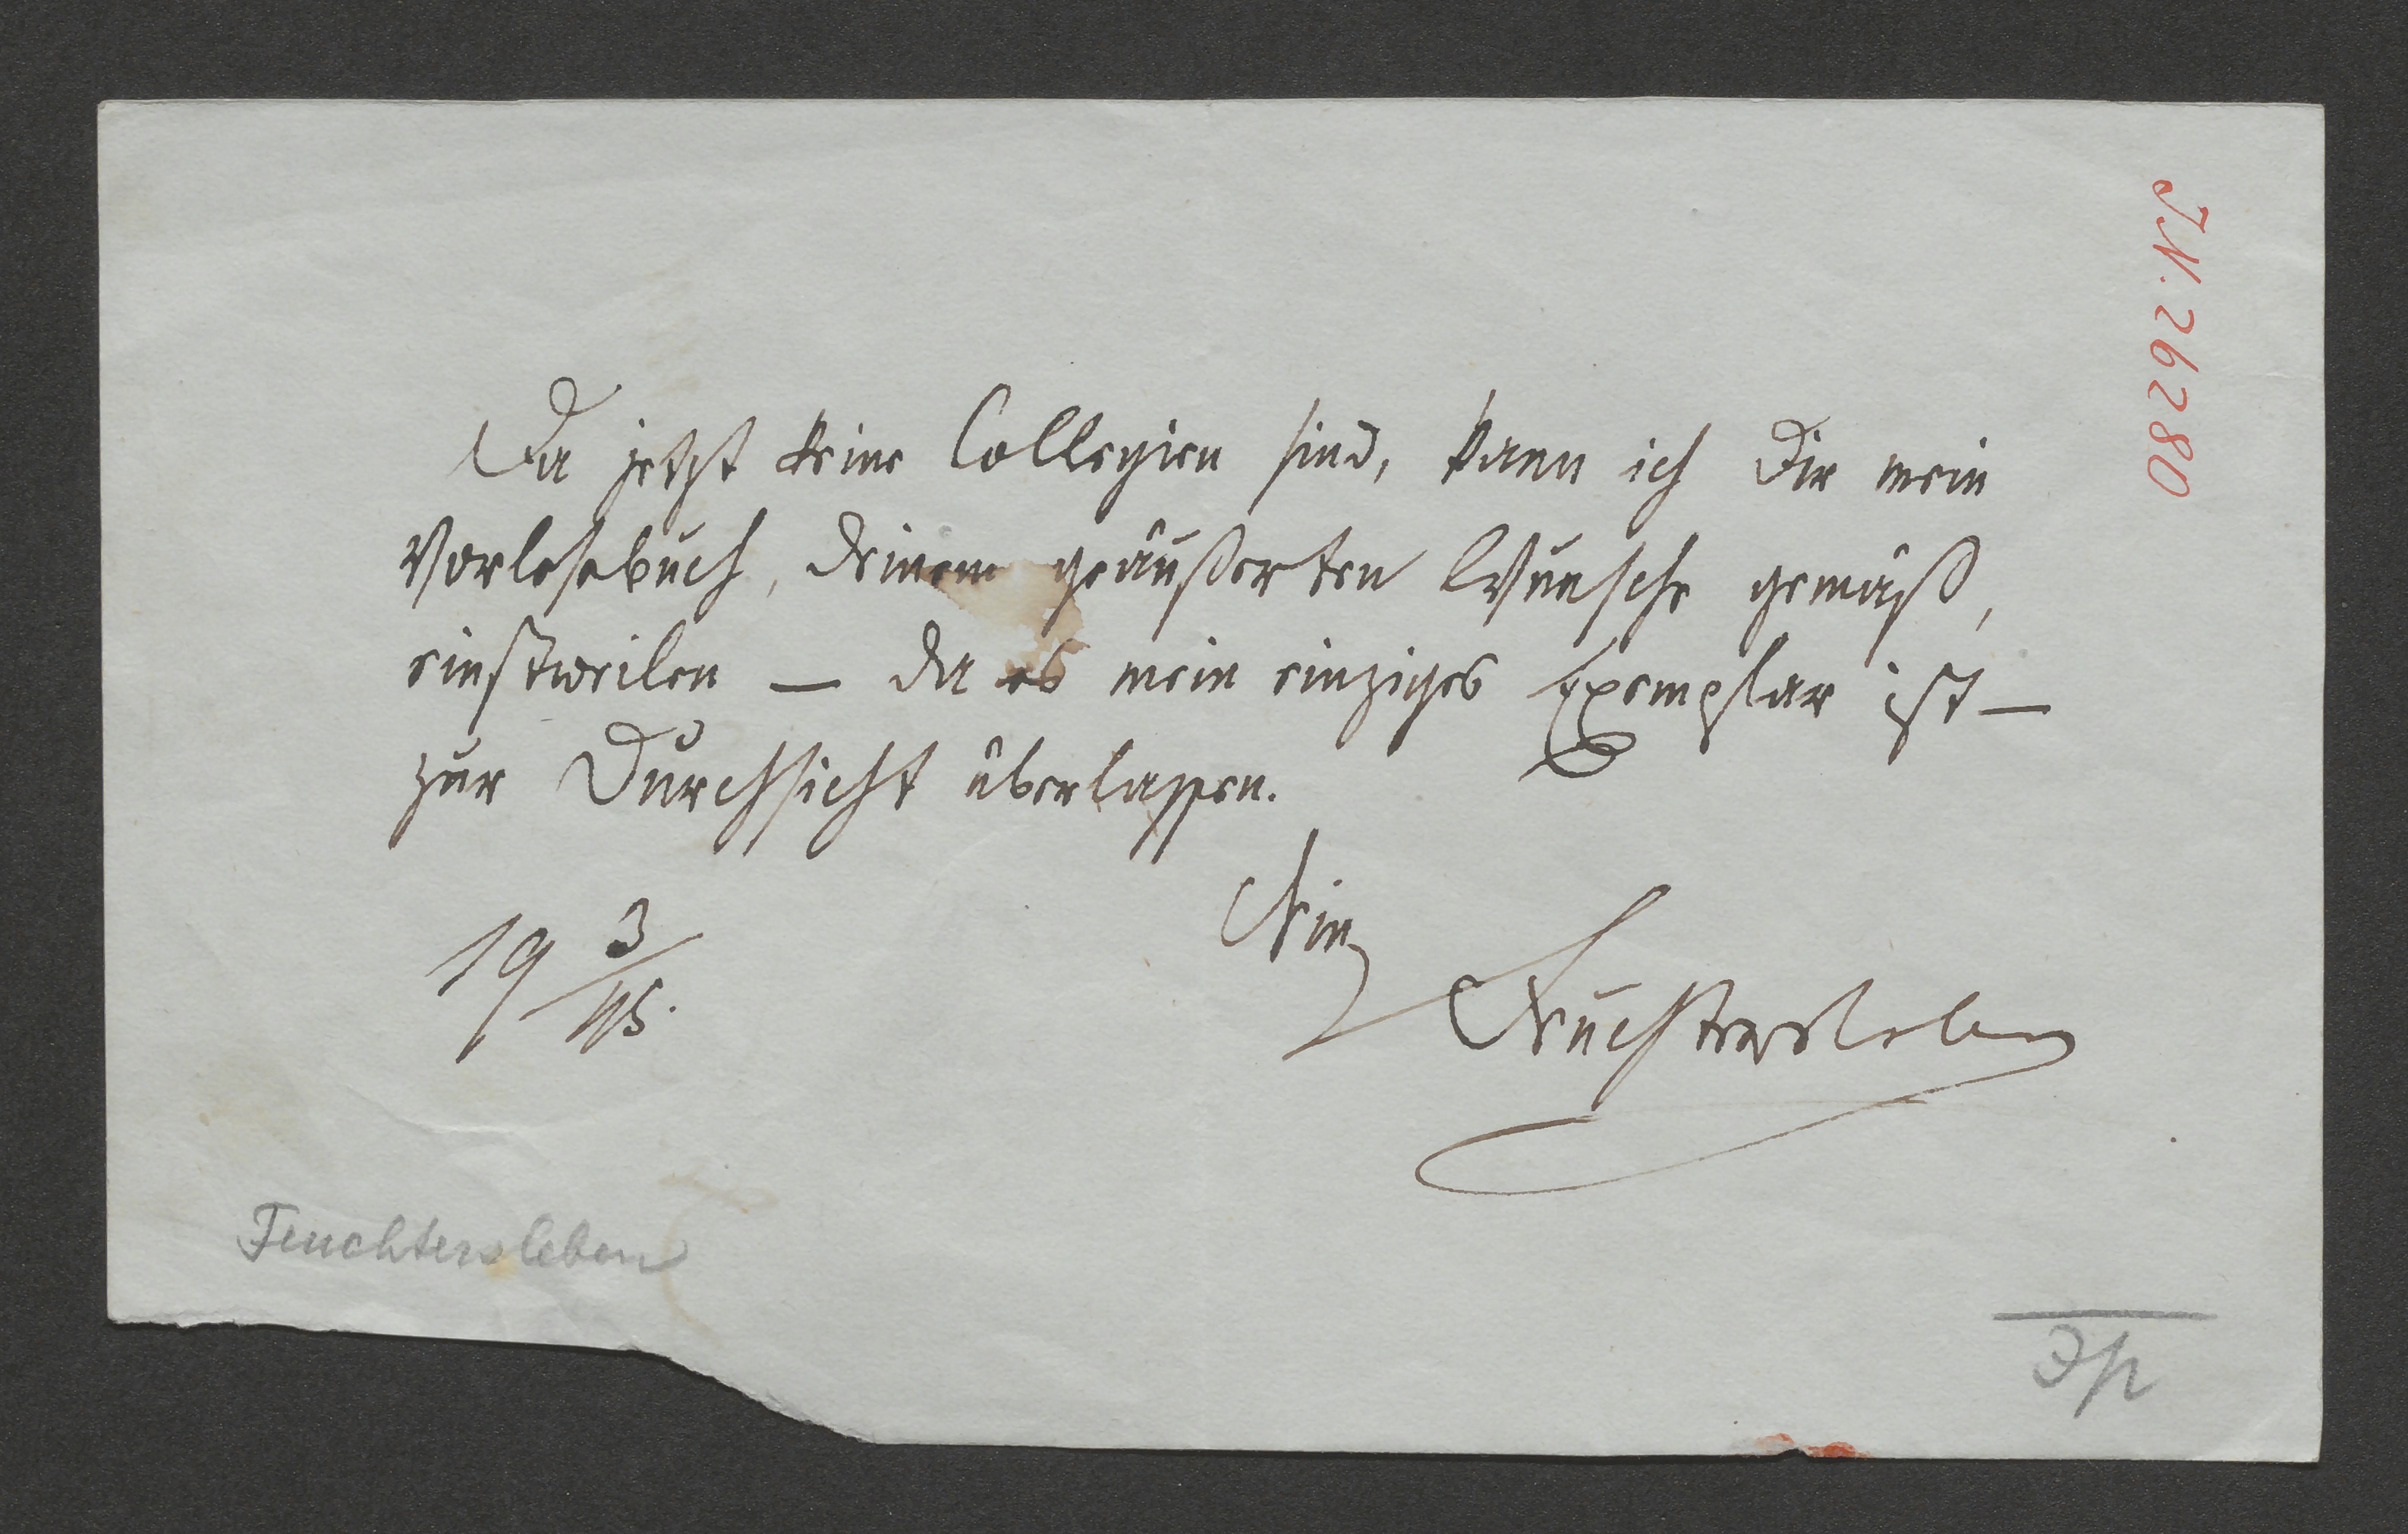 J.N. 26280
Da jetzt keine Collegien sind, kann ich Dir mein
Vorlesebuch, deinem geäußerten Wunsche gemäß,
einstweilen — da es mein einziges Exemplar ist —
zur Durchsicht überlassen.
19 3/45.
Dein
Feuchtersleben
Feuchtersleben